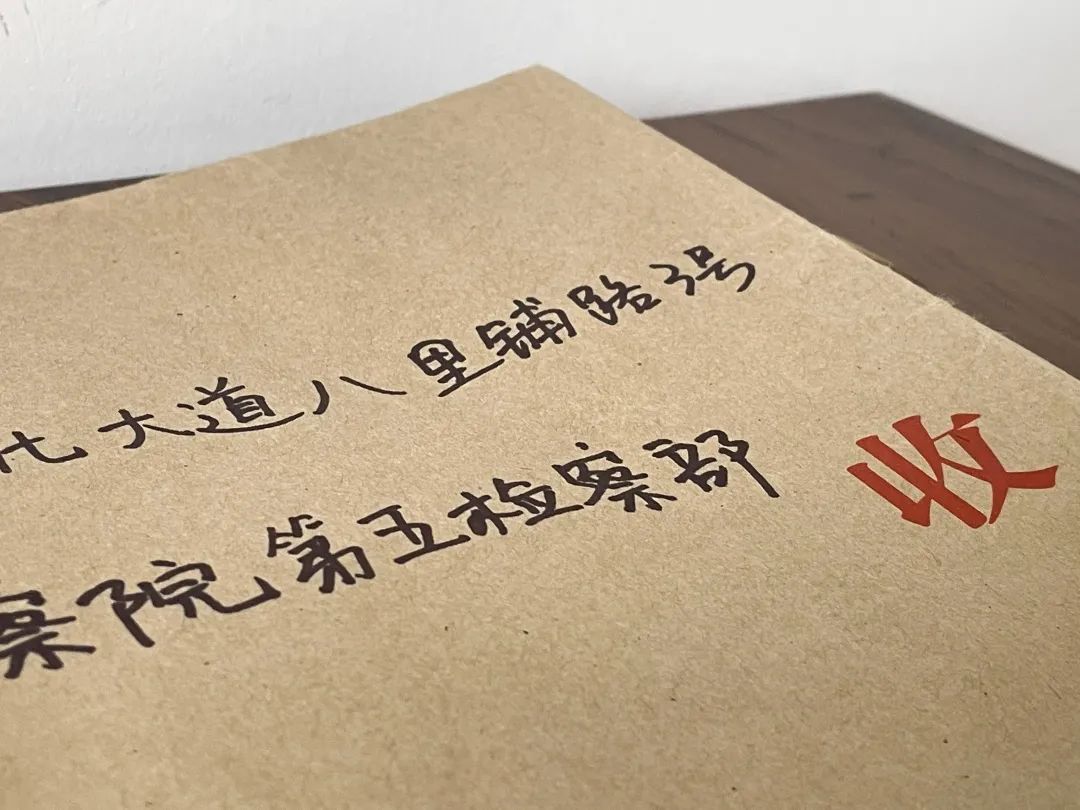 大道八里铺路3号
察院第五检察部
收